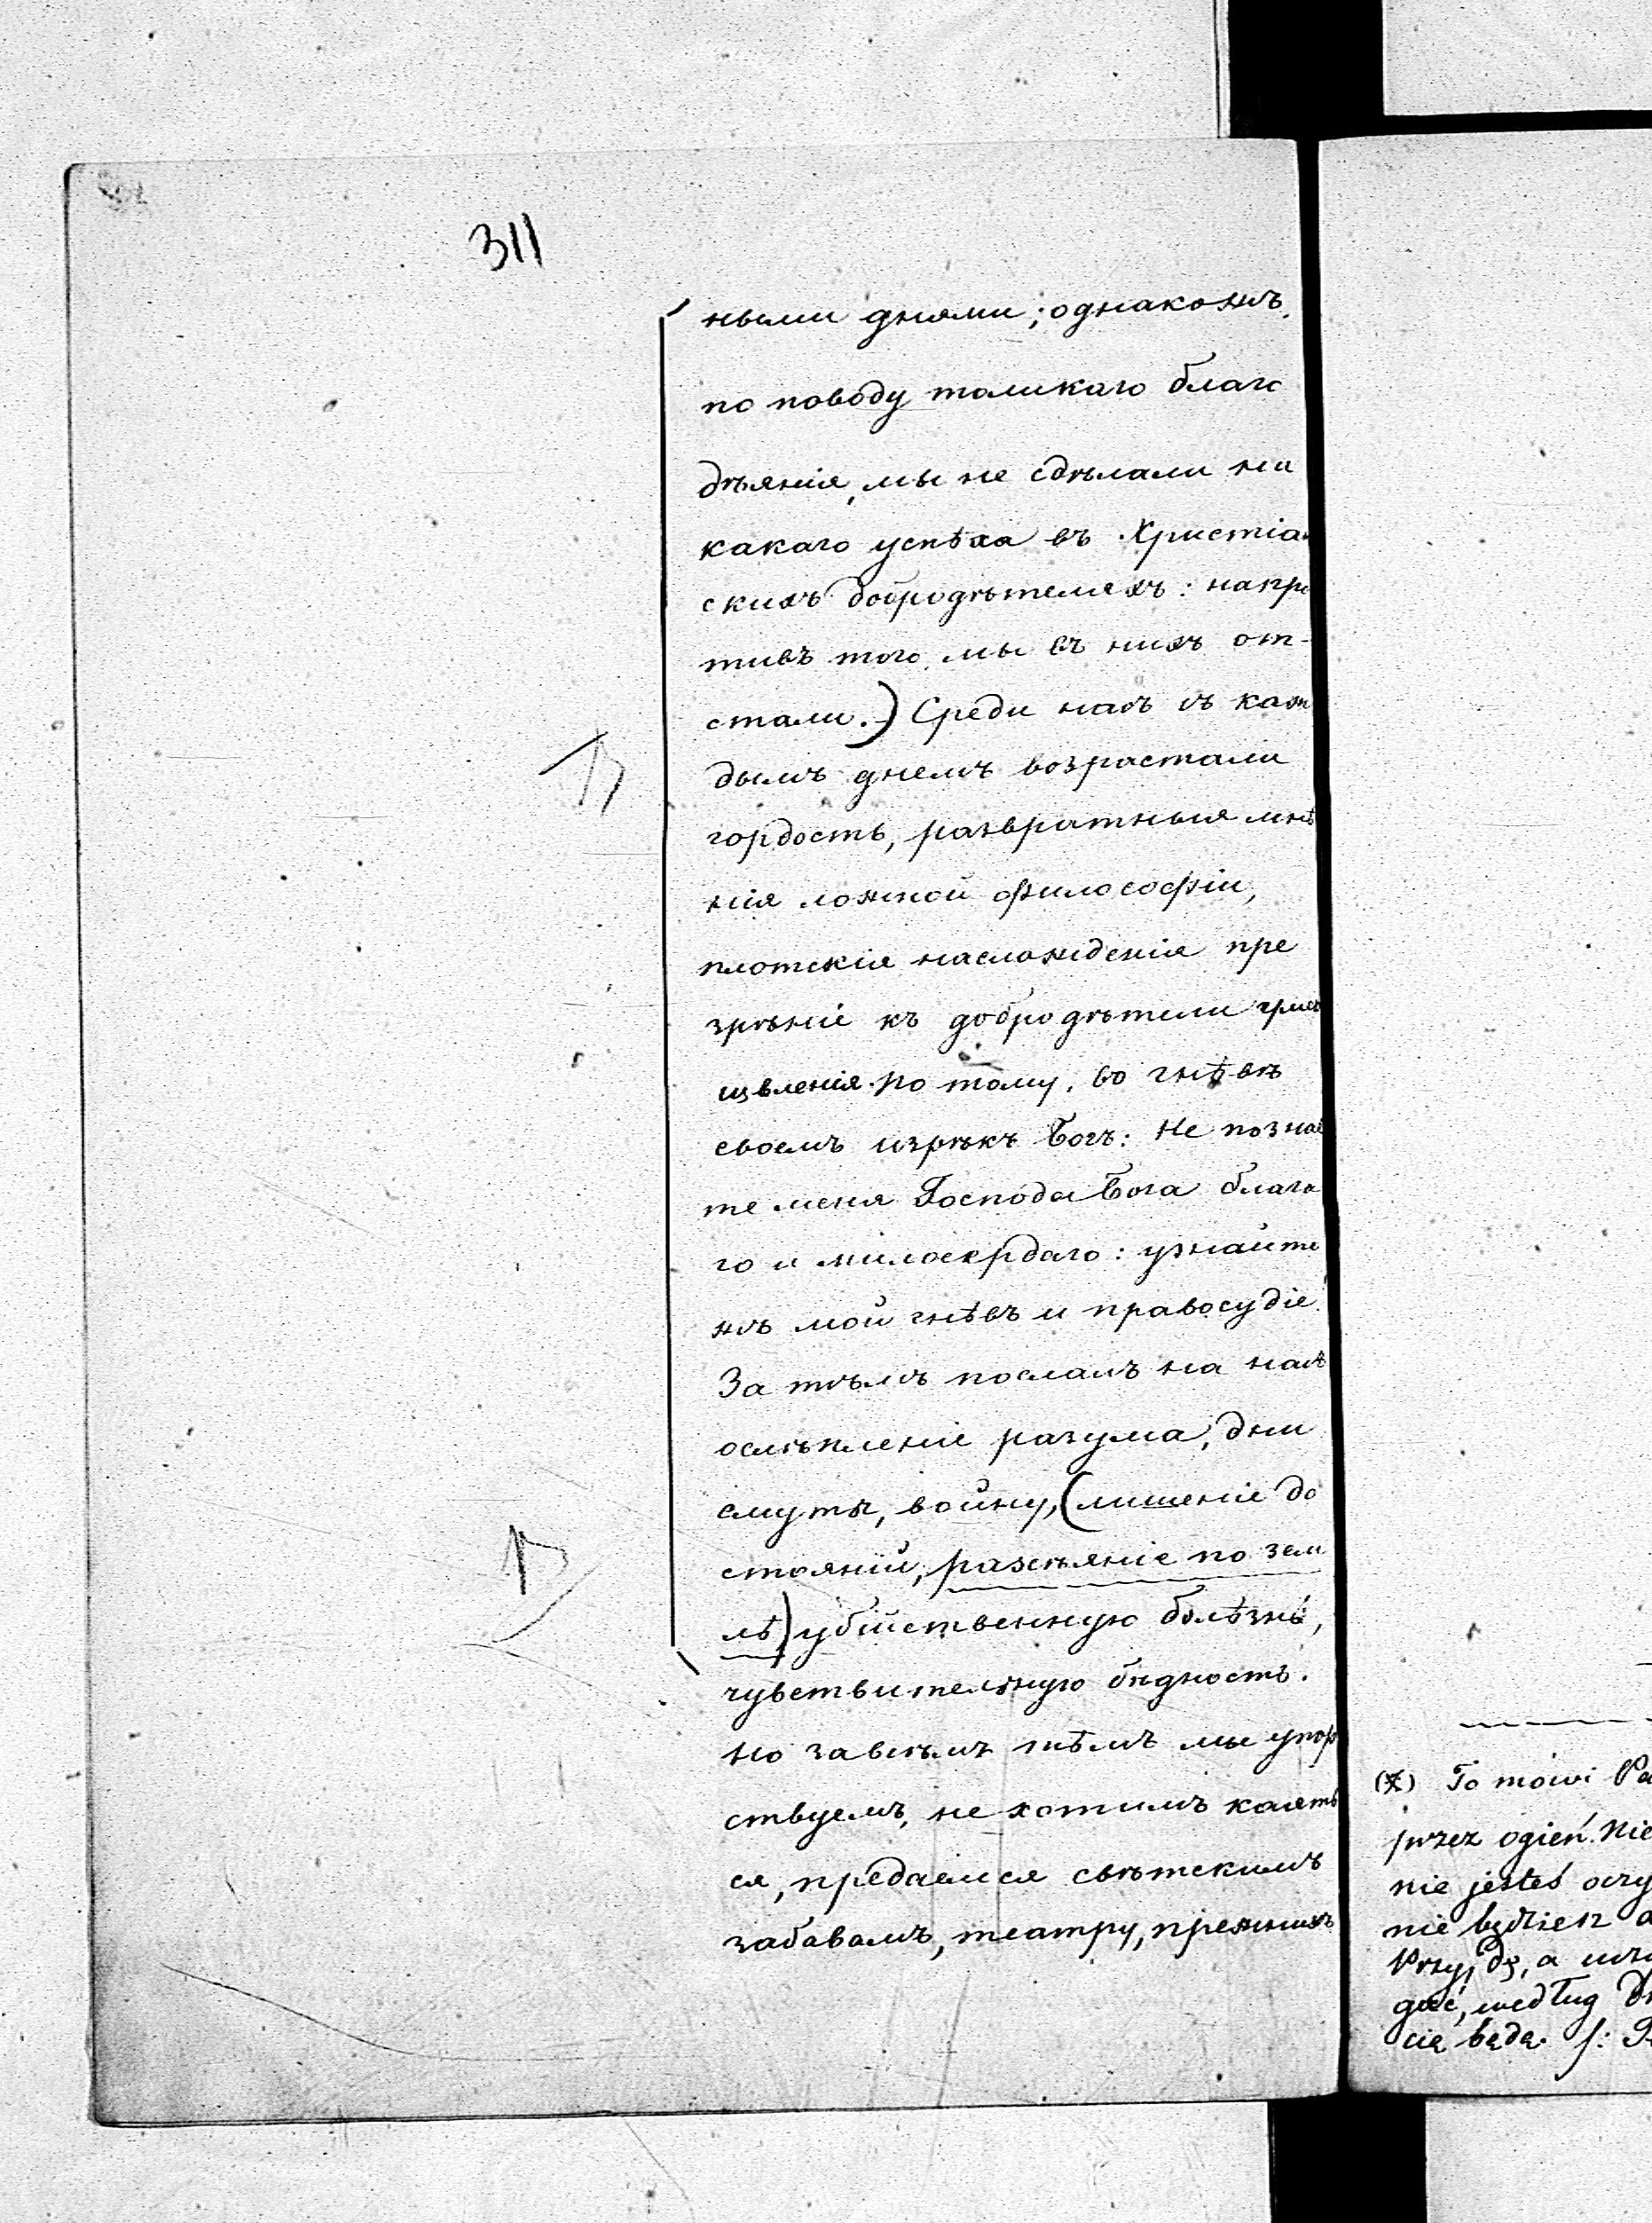 311
ными днями; однакожъ
по поводу толикаго благо
дѣянія, мы не сдѣлали ни
какаго успѣха въ Христіан
скихъ добродѣтеляхъ: напро
тивъ того мы въ нихъ от-
стали.) Среди насъ съ каж
дымъ днемъ возрастали
гордость, развратныя мнѣ
нія ложной философіи,
плотскія наслажденія пре
зрѣніе къ добродѣтели
по тому, во гнѣвѣ
своемъ изрѣкъ Богъ: Не познае
те меня Господа Бога благо
го и милосердаго: узнайте
жъ мой гнѣвъ и правосудіе.
За тѣмъ послалъ на насъ
ослѣпленіе разума, дни
смуты, войну, (лишеніе до
стояній, разсѣяніе по зем
лѣ) убійственную болѣзнь,
чувствительную бѣдность.
Но за всѣмъ тѣмъ мы упор
ствуемъ, не хотимъ каять
ся, предаемся свѣтскимъ
забавамъ, театру, прежнихъ
(*) To mówi Pa
przez ogień. Nie
nie jesteś oczy
nie będziesz a
Przyjdę, a
gać, według
cię będą. f: